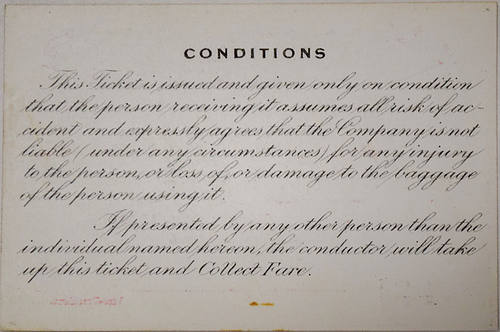 CONDITIONS
This Ticket is issued and given only on condition
that the person receiving it assumes all risk of ac-
cident and expressly agrees that the Company is not
liable (under any circumstances) for any injury
to the person, or loss of, or damage to the baggage
of the person using it.
If presented by any other person than the
individual named hereon, the conductor will take
up this ticket and Collect Fare.